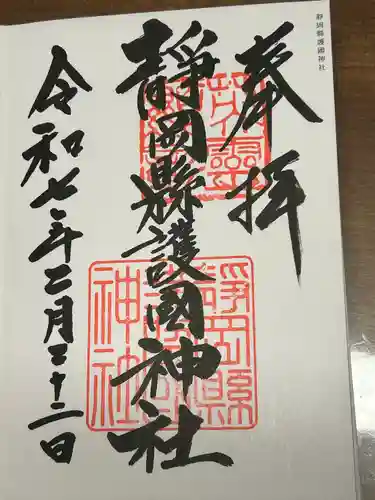 静岡縣護國神社
奉拝
静岡縣護國神社
令和七年二月二十二日
静岡縣護國神社